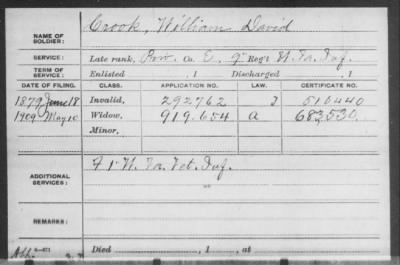 Crook, William David
NAME OF SOLDIER:
SERVICE: Late rank, Priv. Co. E, 9" Reg't W. Va. Inf.
TERM OF SERVICE: Enlisted , 1 Discharged , 1
DATE OF FILING. CLASS. APPLICATION NO. LAW. CERTIFICATE NO.
1879 June 18 Invalid, 292762 510440
1909 May 10 Widow, 919.654 a 683530
Minor,
ADDITIONAL SERVICES: 1" W. Va. Vet. Inf.
REMARKS:
Died , 1 , at